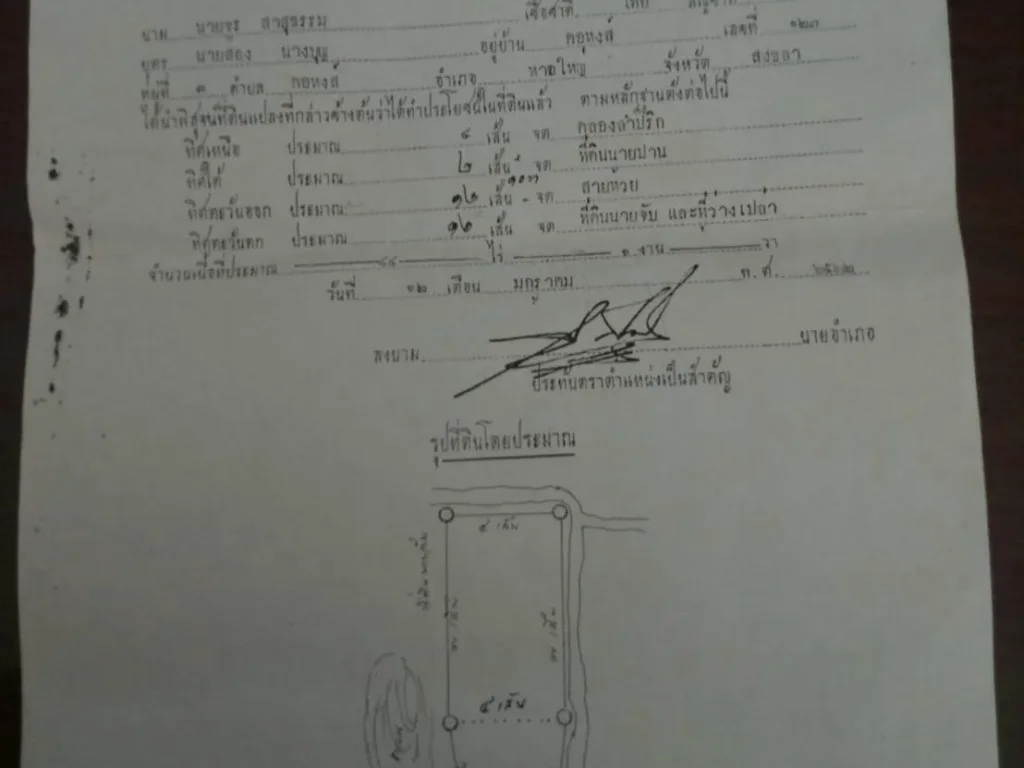 นาม นายจูร สาสุธรรม เชื้อชาติ ไทย สัญชาติ
บุตร นายสอง นางบุญ อยู่บ้าน คอหงส์ เลขที่ ๑๒๓
หมู่ที่ ๓ ตำบล คอหงส์ อำเภอ หาดใหญ่ จังหวัด สงขลา
ได้นำพิสูจน์ที่ดินแปลงที่กล่าวข้างต้นว่าได้ทำประโยชน์ในที่ดินแล้ว ตามหลักฐานดังต่อไปนี้
ทิศเหนือ ประมาณ ๔ เส้น จด คลองลำปริก
ทิศใต้ ประมาณ ๒ เส้น จด ที่ดินนายปาน
ทิศตะวันออก ประมาณ ๑๒ เส้น - จด สายห้วย
ทิศตะวันตก ประมาณ ๑๒ เส้น จด ที่ดินนายจับ และที่ว่างเปล่า
จำนวนเนื้อที่ประมาณ ๔๔ ไร่ - งาน วา
วันที่ ๑๒ เดือน มกราคม พ.ศ.
ลงนาม นายอำเภอ
ประทับตราตำแหน่งเป็นสำคัญ
รูปที่ดินโดยประมาณ
๔ เส้น
๔ เส้น